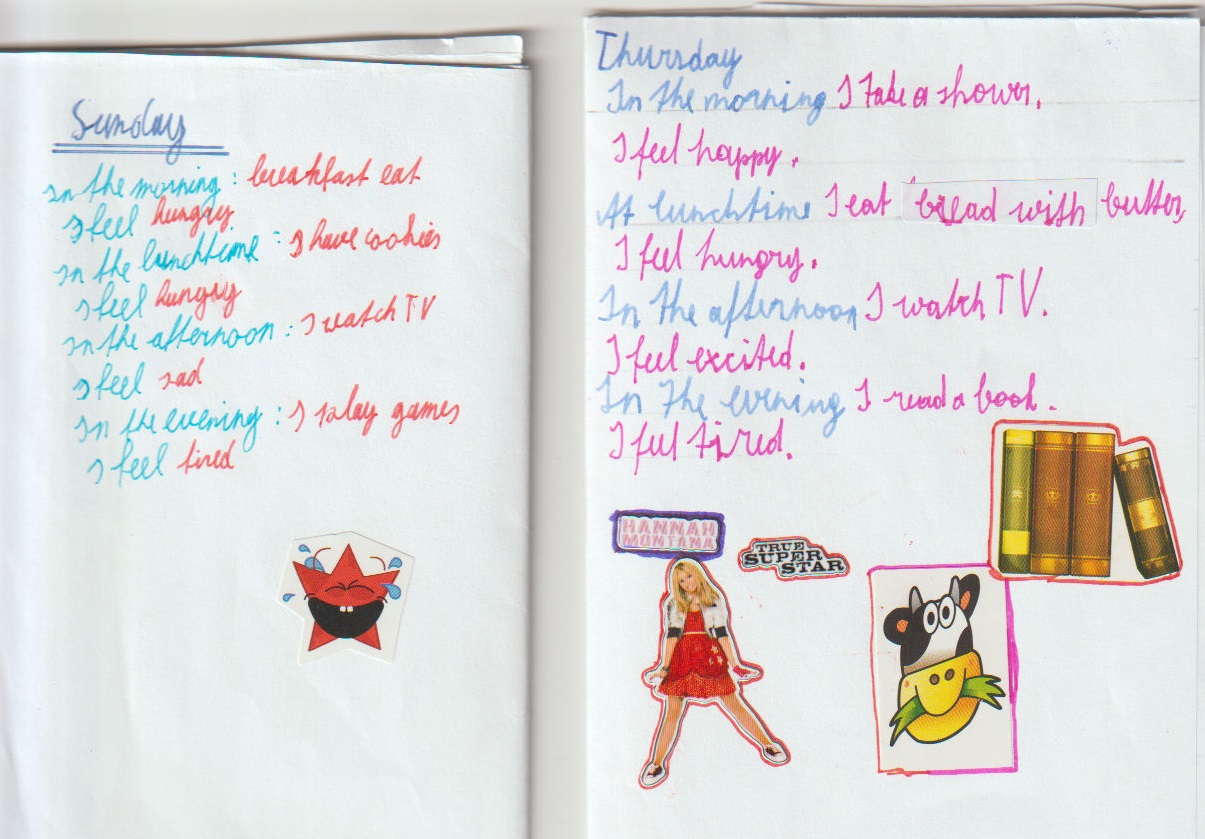 Sunday
In the morning : breakfast eat
I feel hungry
In the lunchtime : I have cookies
I feel hungry
In the afternoon : I watch TV
I feel sad
In the evening : I play games
I feel tired
Thursday
In the morning I take a shower.
I feel happy.
At lunchtime I eat bread with butter,
I feel hungry.
In the afternoon I watch TV.
I feel excited.
In the evening I read a book.
I feel tired.
HANNAH
MONTANA
TRUE
SUPER
STAR